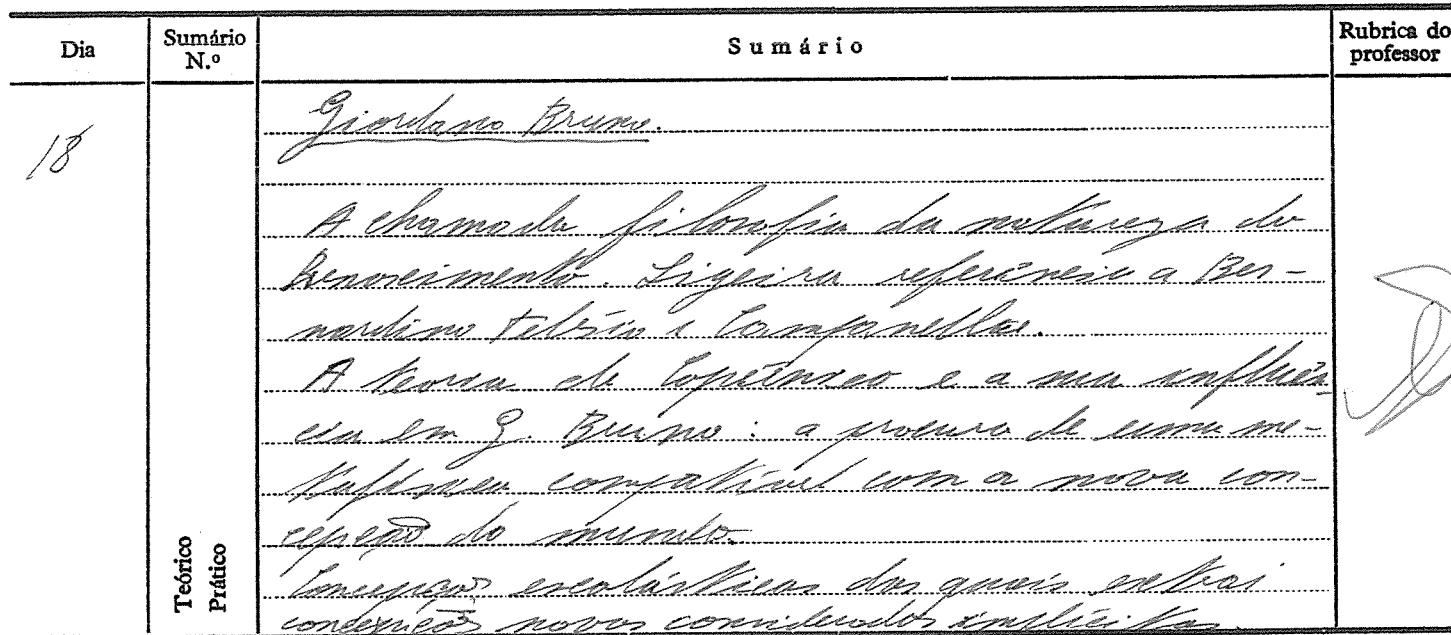 Dia
Sumário N.º
Sumário
Rubrica do professor
18
Teórico
Prático
Giordano Bruno.
A chamada filosofia da natureza do
Renascimento. Ligeira referência a Ber-
nardino Telésio e Campanella.
A teoria de Copérnico e a sua influên-
cia em G. Bruno: a procura de uma me-
tafísica compatível com a nova con-
cepção do mundo.
Concepções escolásticas das quais extrai
concepções novas consideradas implícitas